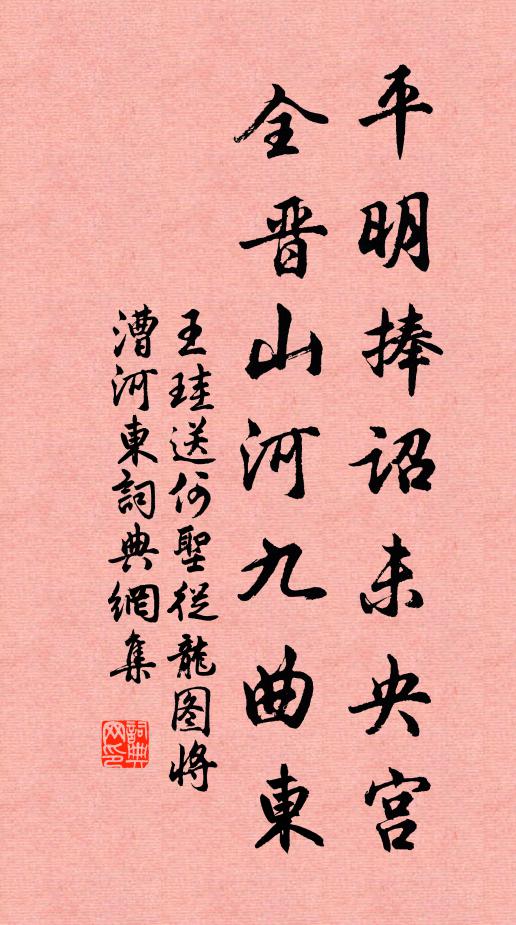 平明捧詔未央宫
全晋山河九曲東
王珪送何聖從龍图將
漕河東詞典網集
詞典
网印